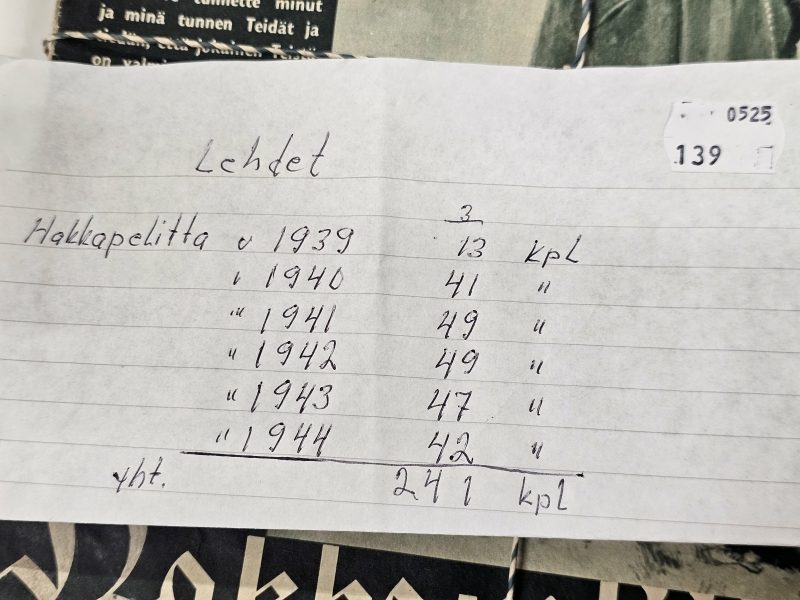 tunnette minut
ja minä tunnen Teidät ja
tiedän, että jokainen Teistä
on
0525
139
Lehdet
3
Hakkapelitta v 1939 13 kpl
" 1940 41 "
" 1941 49 "
" 1942 49 "
" 1943 47 "
" 1944 42 "
yht. 241 kpl